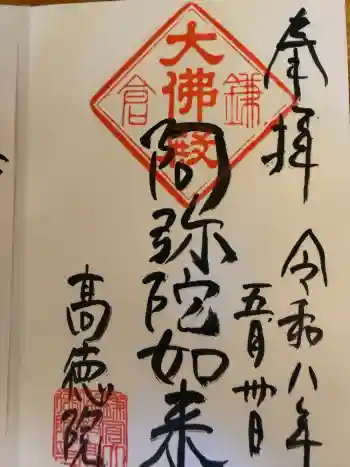 奉拝
令和八年
五月卅日
大佛殿
鎌倉
阿弥陀如来
高徳院